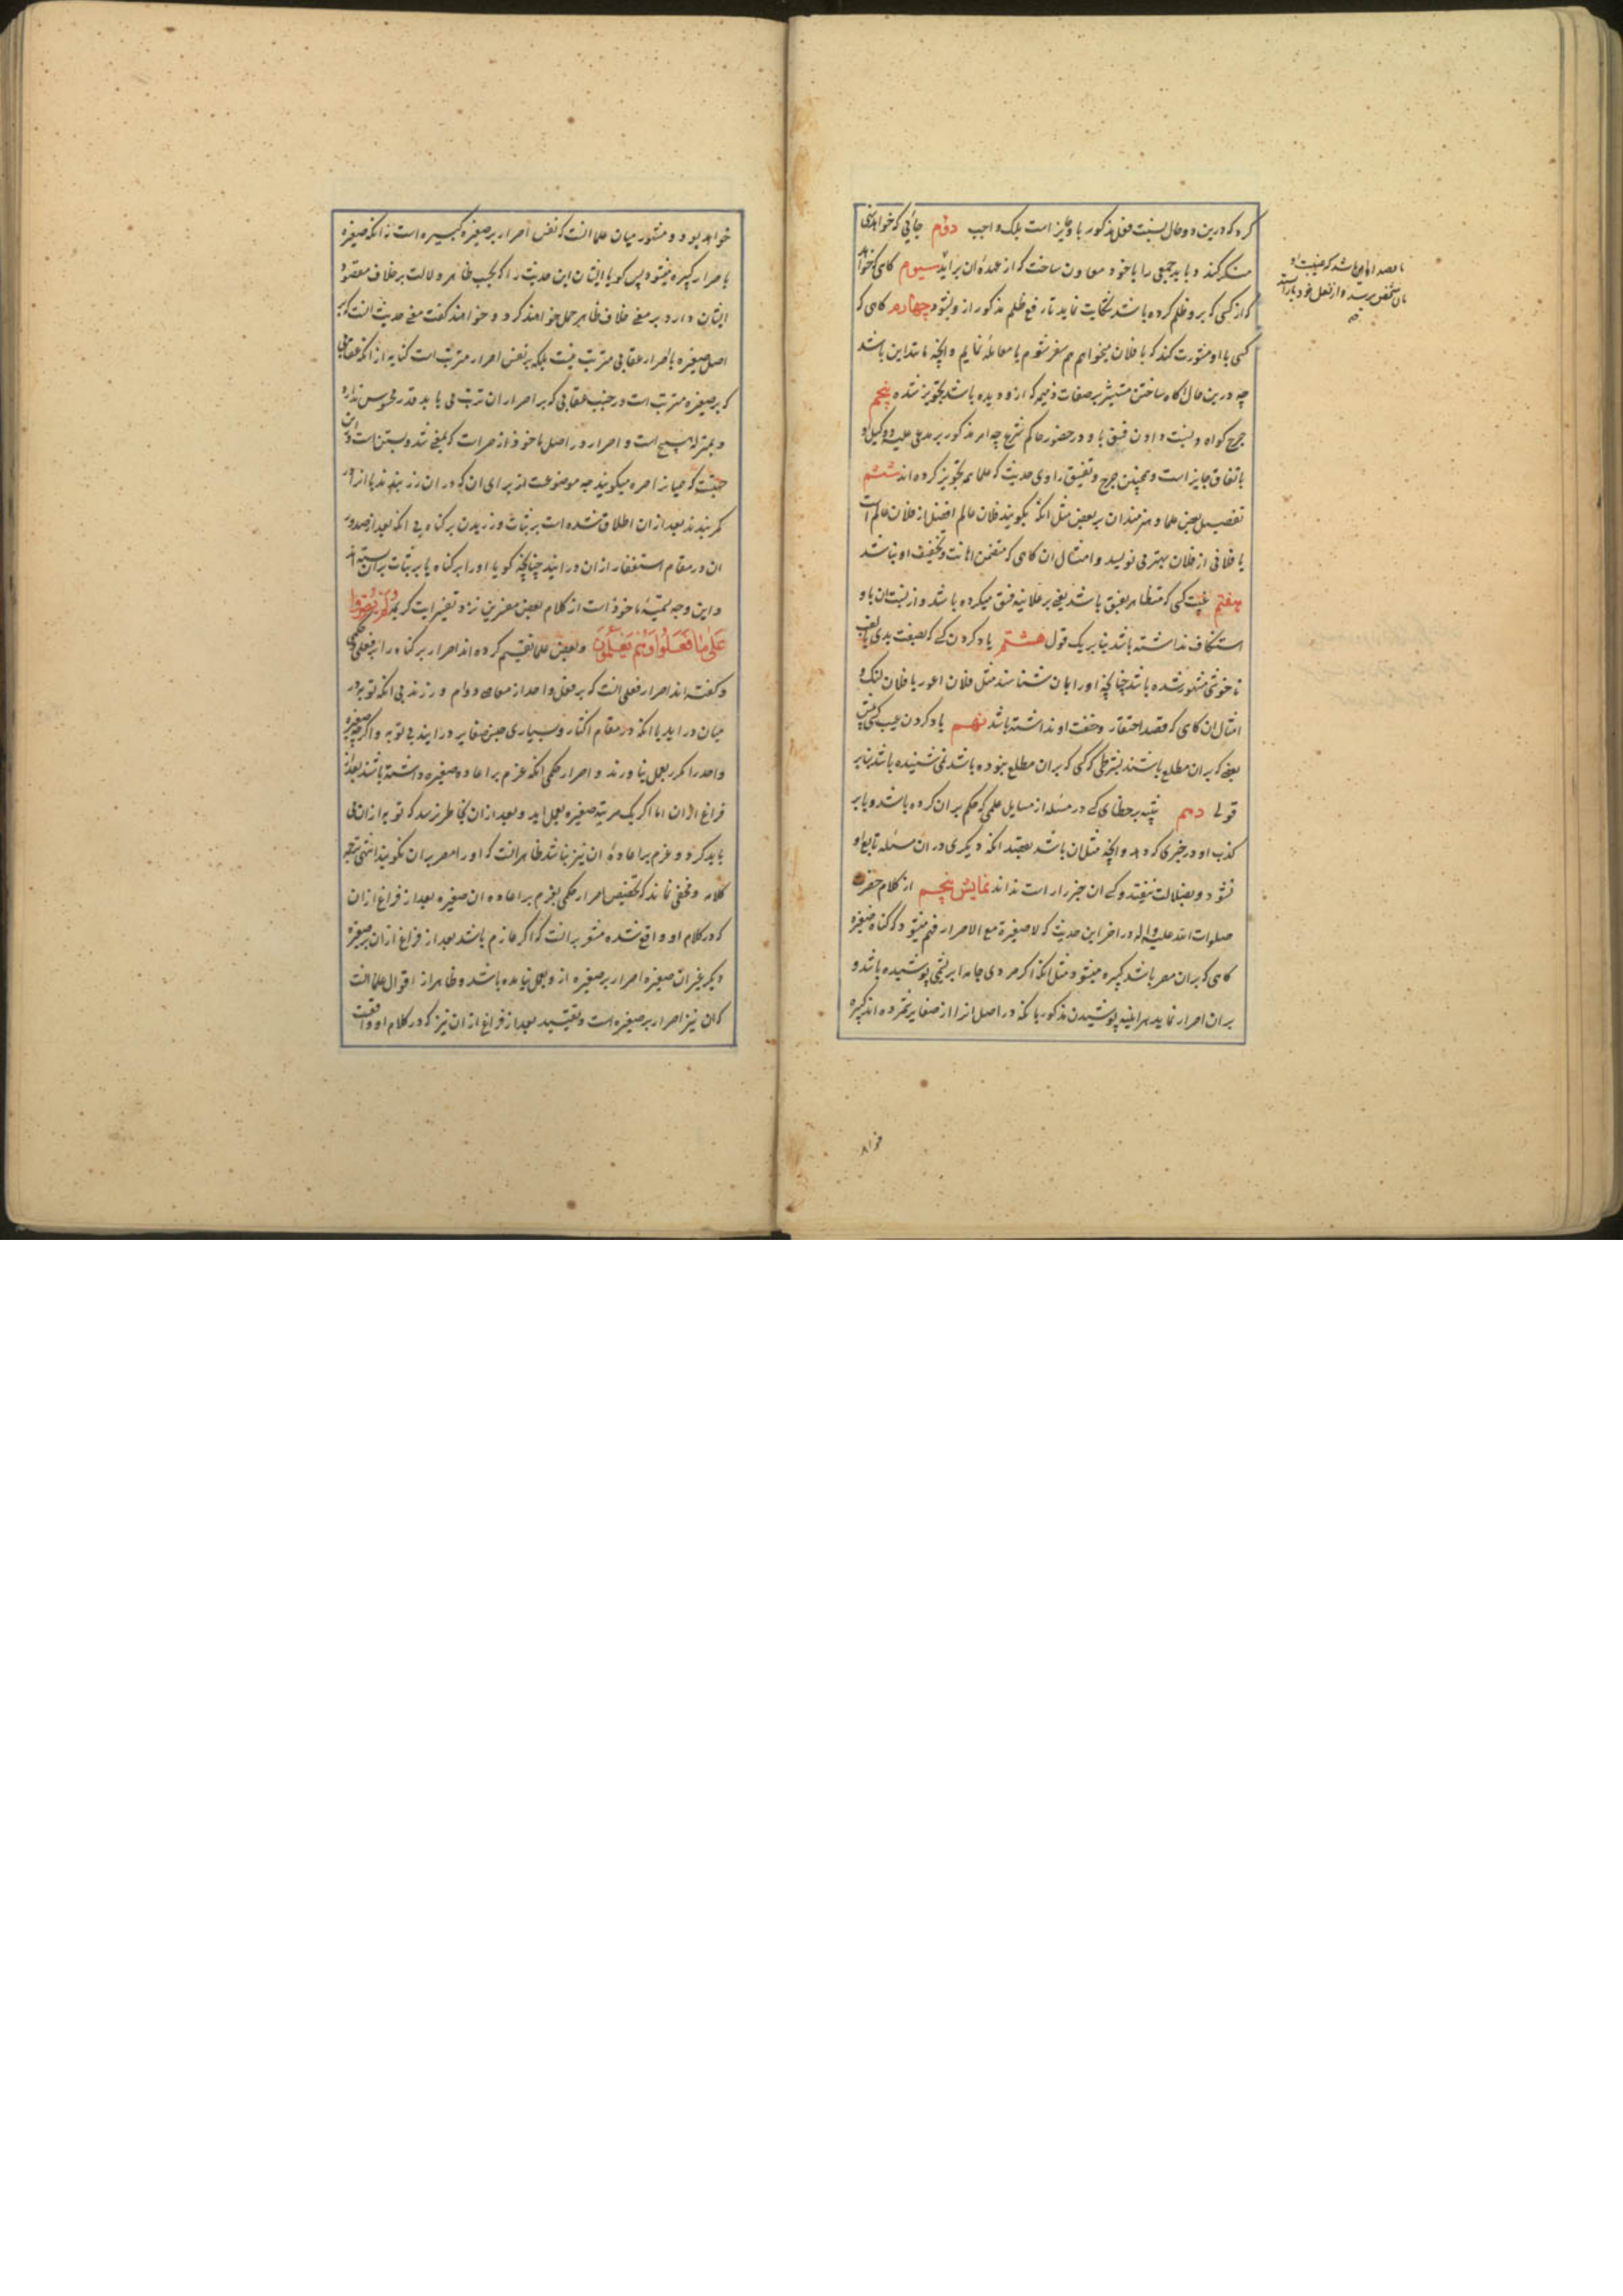 کرد که درین دو حال نسبت فعل مذکور باو جایز است بلکه واجب دوّم جائی که خواهد نهی
منکر کند و باید جمعی را با خود معاون ساخت که از عهده ان براید سیوم کاهی که خواهد
که از کسی که برو ظلم کرده باشد شکایت نماید تا رفع ظلم مذکور از و بشود چهارم کاهی که
کسی با او مشورت کند که با فلان میخواهم هم سفر شوم یا معامله نمایم و انچه مانند این باشد
چه درین حال اکاه ساختن مستشیر بر صفات ذمیمه که از و دیده باشد تجویز شده پنجم
جرح کواه و نسبت دادن فسق باو در حضور حاکم شرع چه امر مذکور بر مدعی علیه و وکیل او
باتفاق جایز است و همچنین جرح و تفسیق راوی حدیث که علما هم تجویز کرده اند ششم
تفضیل بعض علما و هنرمندان بر بعض مثل انکه بکویند فلان عالم افضل از فلان عالم است
یا فلانی از فلان بهتر می نویسد و امثال ان کاهی که متضمن اهانت و تخفیف او نباشد
هفتم غیبت کسی که متظاهر بفسق باشد یعنی بر علانیه فسق میکرده باشد و از نسبت ان باو
استنکاف نداشته باشد بنا بر یک قول هشتم یاد کردن کسی که بصفت بدی یا لقب
ناخوشی مشهور شده باشد چنانچه او را بان شناسند مثل فلان اعور یا فلان لنک و
امثال ان کاهی که قصد احتقار و خفت او نداشته باشد نهم یاد کردن عیب کسی پیش
بعضی که بران مطلع باشند بشرطی که کسی که بران مطلع نبوده باشد نمی شنیده باشد بنا بر
قولی دهم تنبیه بر خطای کسی در مسئله از مسایل علمی که حکم بران کرده باشد و یا بر
کذب او در خبری که دهد و انچه مثل ان باشد بقصد انکه دیکری در ان مسئله تابع او
نشود و بضلالت نیفتد و کسی ان خبر را راست نداند نمایش پنجم از کلام حضرت
صلوات الله علیه و اله در اخر این حدیث که لا صغیرة مع الاصرار فهم میشود که کناه صغیره
کاهی که بران مصر باشد کبیره میشود مثل انکه اکر مردی جامه ابریشمی پوشیده باشد و
بران اصرار نماید هراینه پوشیدن مذکور با انکه در اصل انرا از صغایر شمرده اند کبیره
اما قصد او این باشد که غیبت او
بان شخص برسد و از فعل خود باز ایستد
خواهد
خواهد بود و مشهور میان علما انست که نفس اصرار بر صغیره کبیره است نه انکه صغیره
باصرار کبیره میشود پس کویا ایشان این حدیث را که بحسب ظاهر دلالت بر خلاف مقصود
ایشان دارد بر معنی خلاف ظاهر حمل خواهند کرد و خواهند کفت معنی حدیث انست که بر
اصل صغیره با اصرار عقابی مترتب نیست بلکه بر نفس اصرار مترتب است کنایه از انکه عقابی
که بر صغیره مترتب است در جنب عقابی که بر اصرار ان ترتب می یابد قدر محسوس ندارد
و بمنزله هیچ است و اصرار در اصل ماخوذ از صرات که بمعنی شد و بستن است و ازین
حیثیت که همیان را صره میکویند چه موضوعست از برای ان که در ان زر بنهند یا از ا در
کمر بندند بعد ازان اطلاق شده است بر ثبات ورزیدن بر کناه بی انکه بعد از صدور
ان در مقام استغفار ازان درایند چنانچه کویا او را بر کناه یا بر ثبات بران بسته اند
و این وجه تسمیه ماخوذ است از کلام بعض مفسرین نزد تفسیر ایت کریمه وَلَمْ یُصِرُّوا
عَلَىٰ مَا فَعَلُوا وَهُمْ یَعْلَمُونَ و بعض علما تقسیم کرده اند اصرار بر کناه را بفعلی و حکمی
و کفته اند اصرار فعلی انست که بر فعل واحد از معاصی دوام ورزند بی انکه توبه در
میان دراید یا انکه در مقام اکثار و بسیاری جنس صغایر درایند بی توبه و اکر چه صغیره
واحد را مکرر بعمل نیاورند و اصرار حکمی انکه عزم بر اعاده صغیره داشته باشند بعد از
فراغ ازان اما اکر یک مرتبه صغیره بعمل اید و بعد ازان بخاطر نرسد که توبه ازان می
باید کرد و عزم بر اعاده ان نیز نباشد ظاهر انست که او را مصر بران نکویند انتهی ترجمه
کلامه و مخفی نماند که تخصیص اصرار حکمی بعزم بر اعاده ان صغیره بعد از فراغ ازان
که در کلام او واقع شده مشعر برانست که اکر عازم باشد بعد از فراغ ازان بر صغیره
دیکر بغیر ان صغیره اصرار بر صغیره از و بعمل نیامده باشد و ظاهر از اقوال علما انست
که ان نیز اصرار بر صغیره است و تقیید ببعد از فراغ ازان نیز که در کلام او واقعست